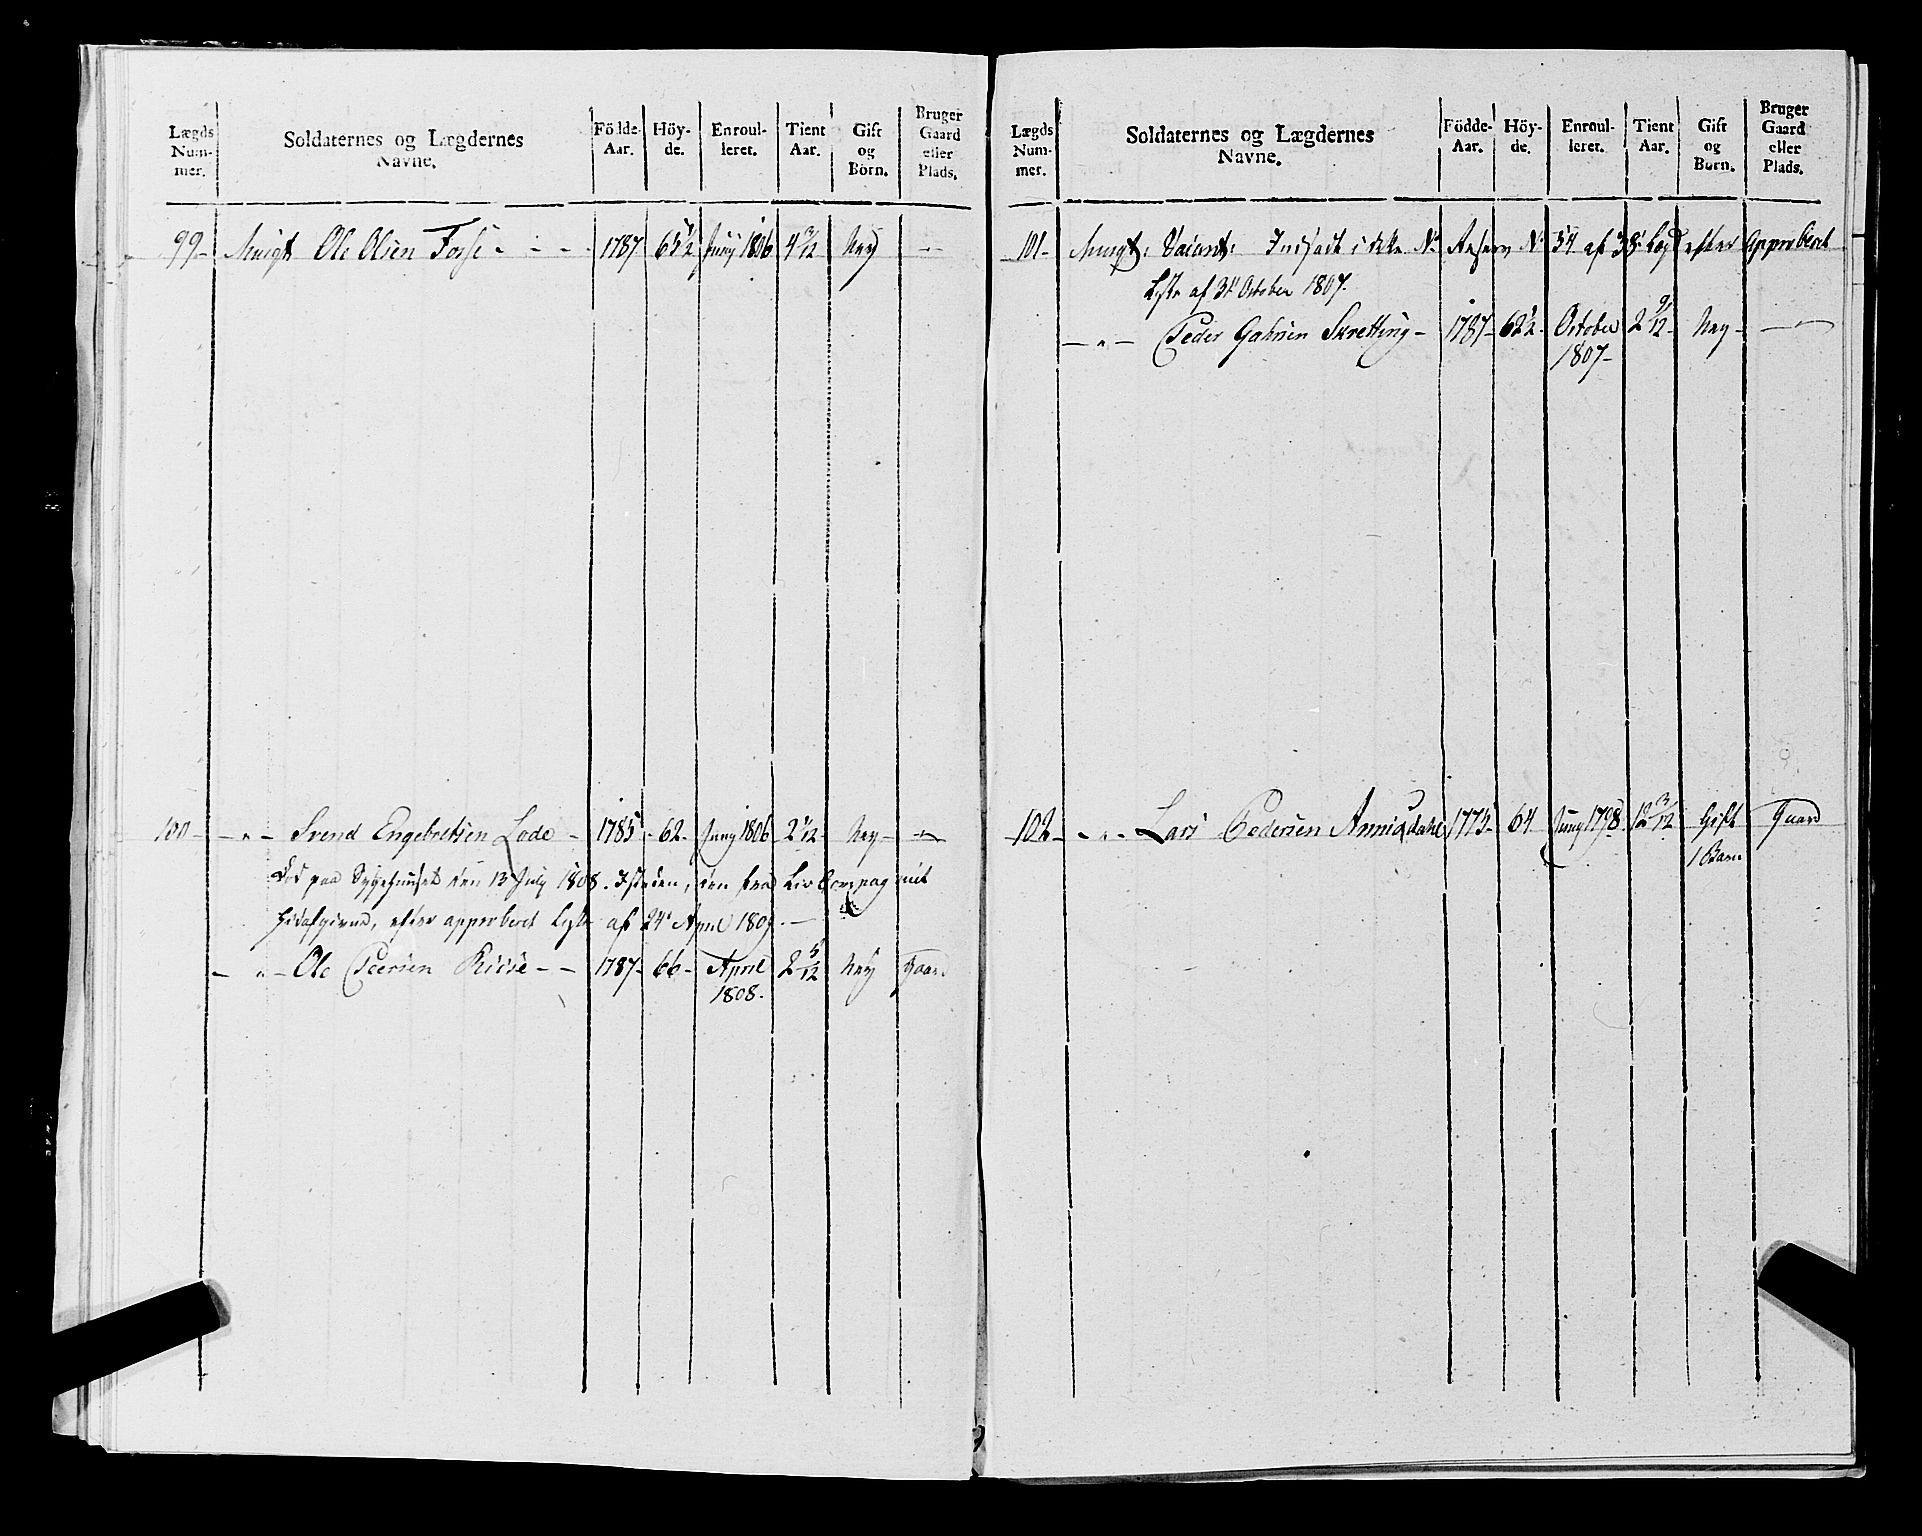 Lægds Num- mer.
Soldaternes og Lægdernes Navne.
Födde- Aar.
Höy- de.
Enroul- leret.
Tient Aar.
Gift og Börn.
Bruger Gaard eller Plads.
99 - Musqt Ole Olsen Fosse - - - 1787 65 1/2 Juny 1806 4 3/12 Ney -
100 - - " - Svend Engebretsen Lode - 1785 - 62 - Juny 1806 2 1/12 Ney - -
Död paa Sygehuuset den 13 July 1808. Isteden, den fra Liv Compag niet
hidafgivne, efter approberet Liste af 24 April 1809. -
- " - Ole Peersen Riise - - 1787 - 66 - April 2 5/12 Ney Gaard
1808.
Lægds Num- mer.
Soldaternes og Lægdernes Navne.
Födde- Aar.
Höy- de.
Enroul- leret.
Tient Aar.
Gift og Börn.
Bruger Gaard eller Plads.
101 - Musqt: Vacant: Indsadt i dette No Reserv No 54 af 38 Lægd efter Approberet
Liste af 31 October 1807.
- " - Peder Gabrien Skretting - 1787 - 62 1/2 - October 2 9/12 - Ney - -
1807 -
102 - - " - Lars Pedersen Anniqdahl 1775 - 64 Juny 1798 12 3/12 Gift Gaard
1 Barn